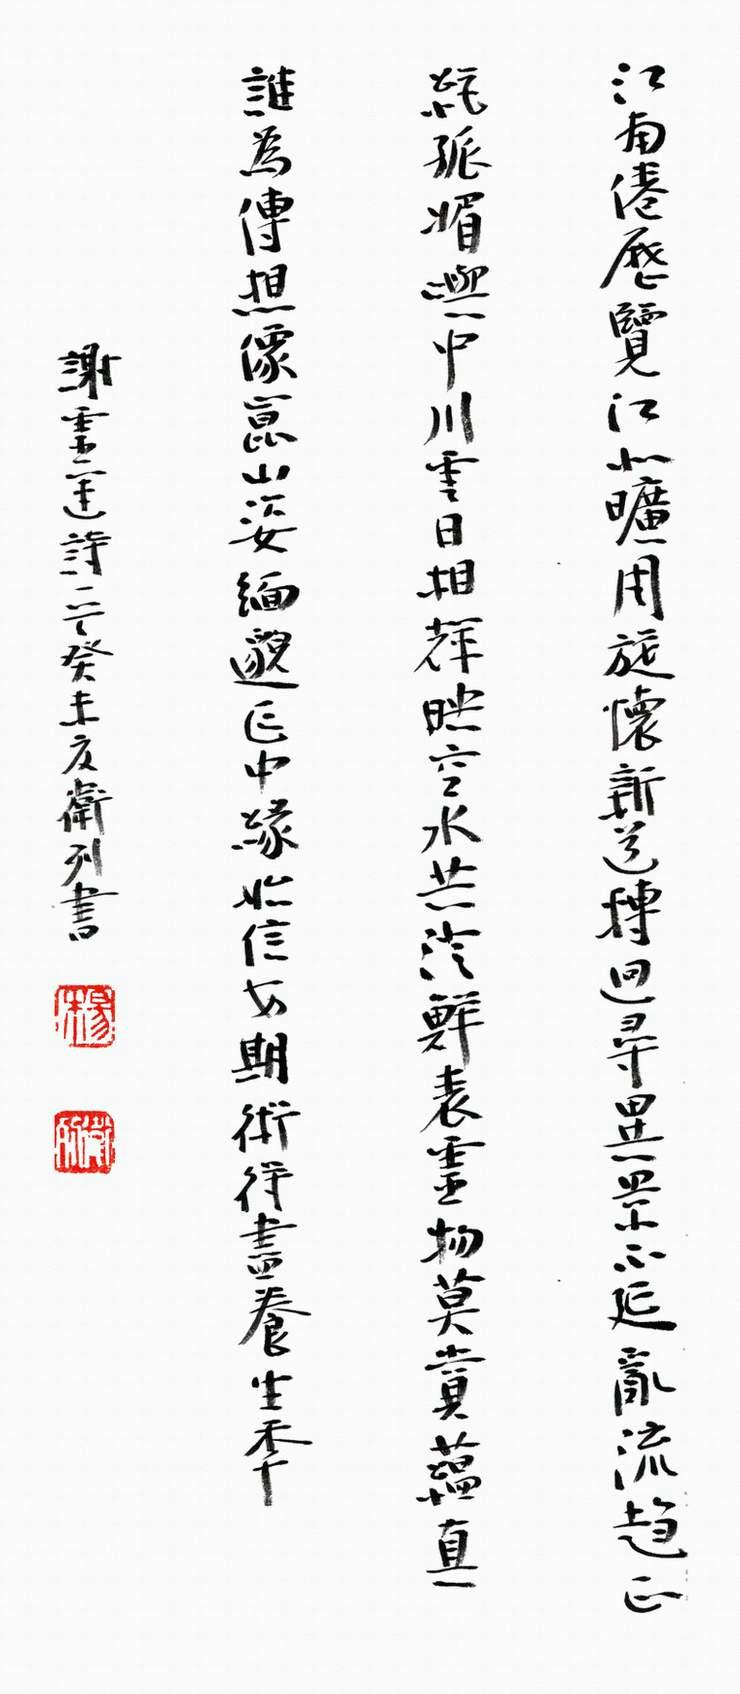 江南倦歷覽江北曠周旋懷新道轉迥尋異景不延亂流趨正
絕孤媚嶼中川雲日相輝映空水共澄鮮表靈物莫賞蘊真
誰為傳想像崑山姿緬邈區中緣始信安期術得盡養生年
謝靈運詩一首癸未夏衛列書